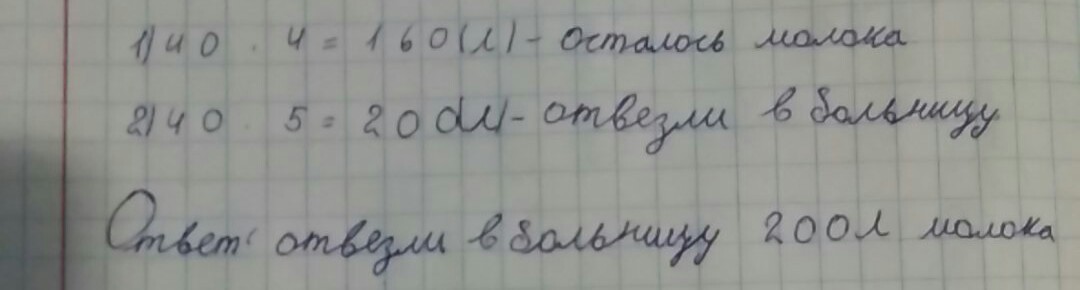 1) 40 · 4 = 160 (л) - осталось молока
2) 40 · 5 = 200 (л) - отвезли в больницу
Ответ: отвезли в больницу 200л молока